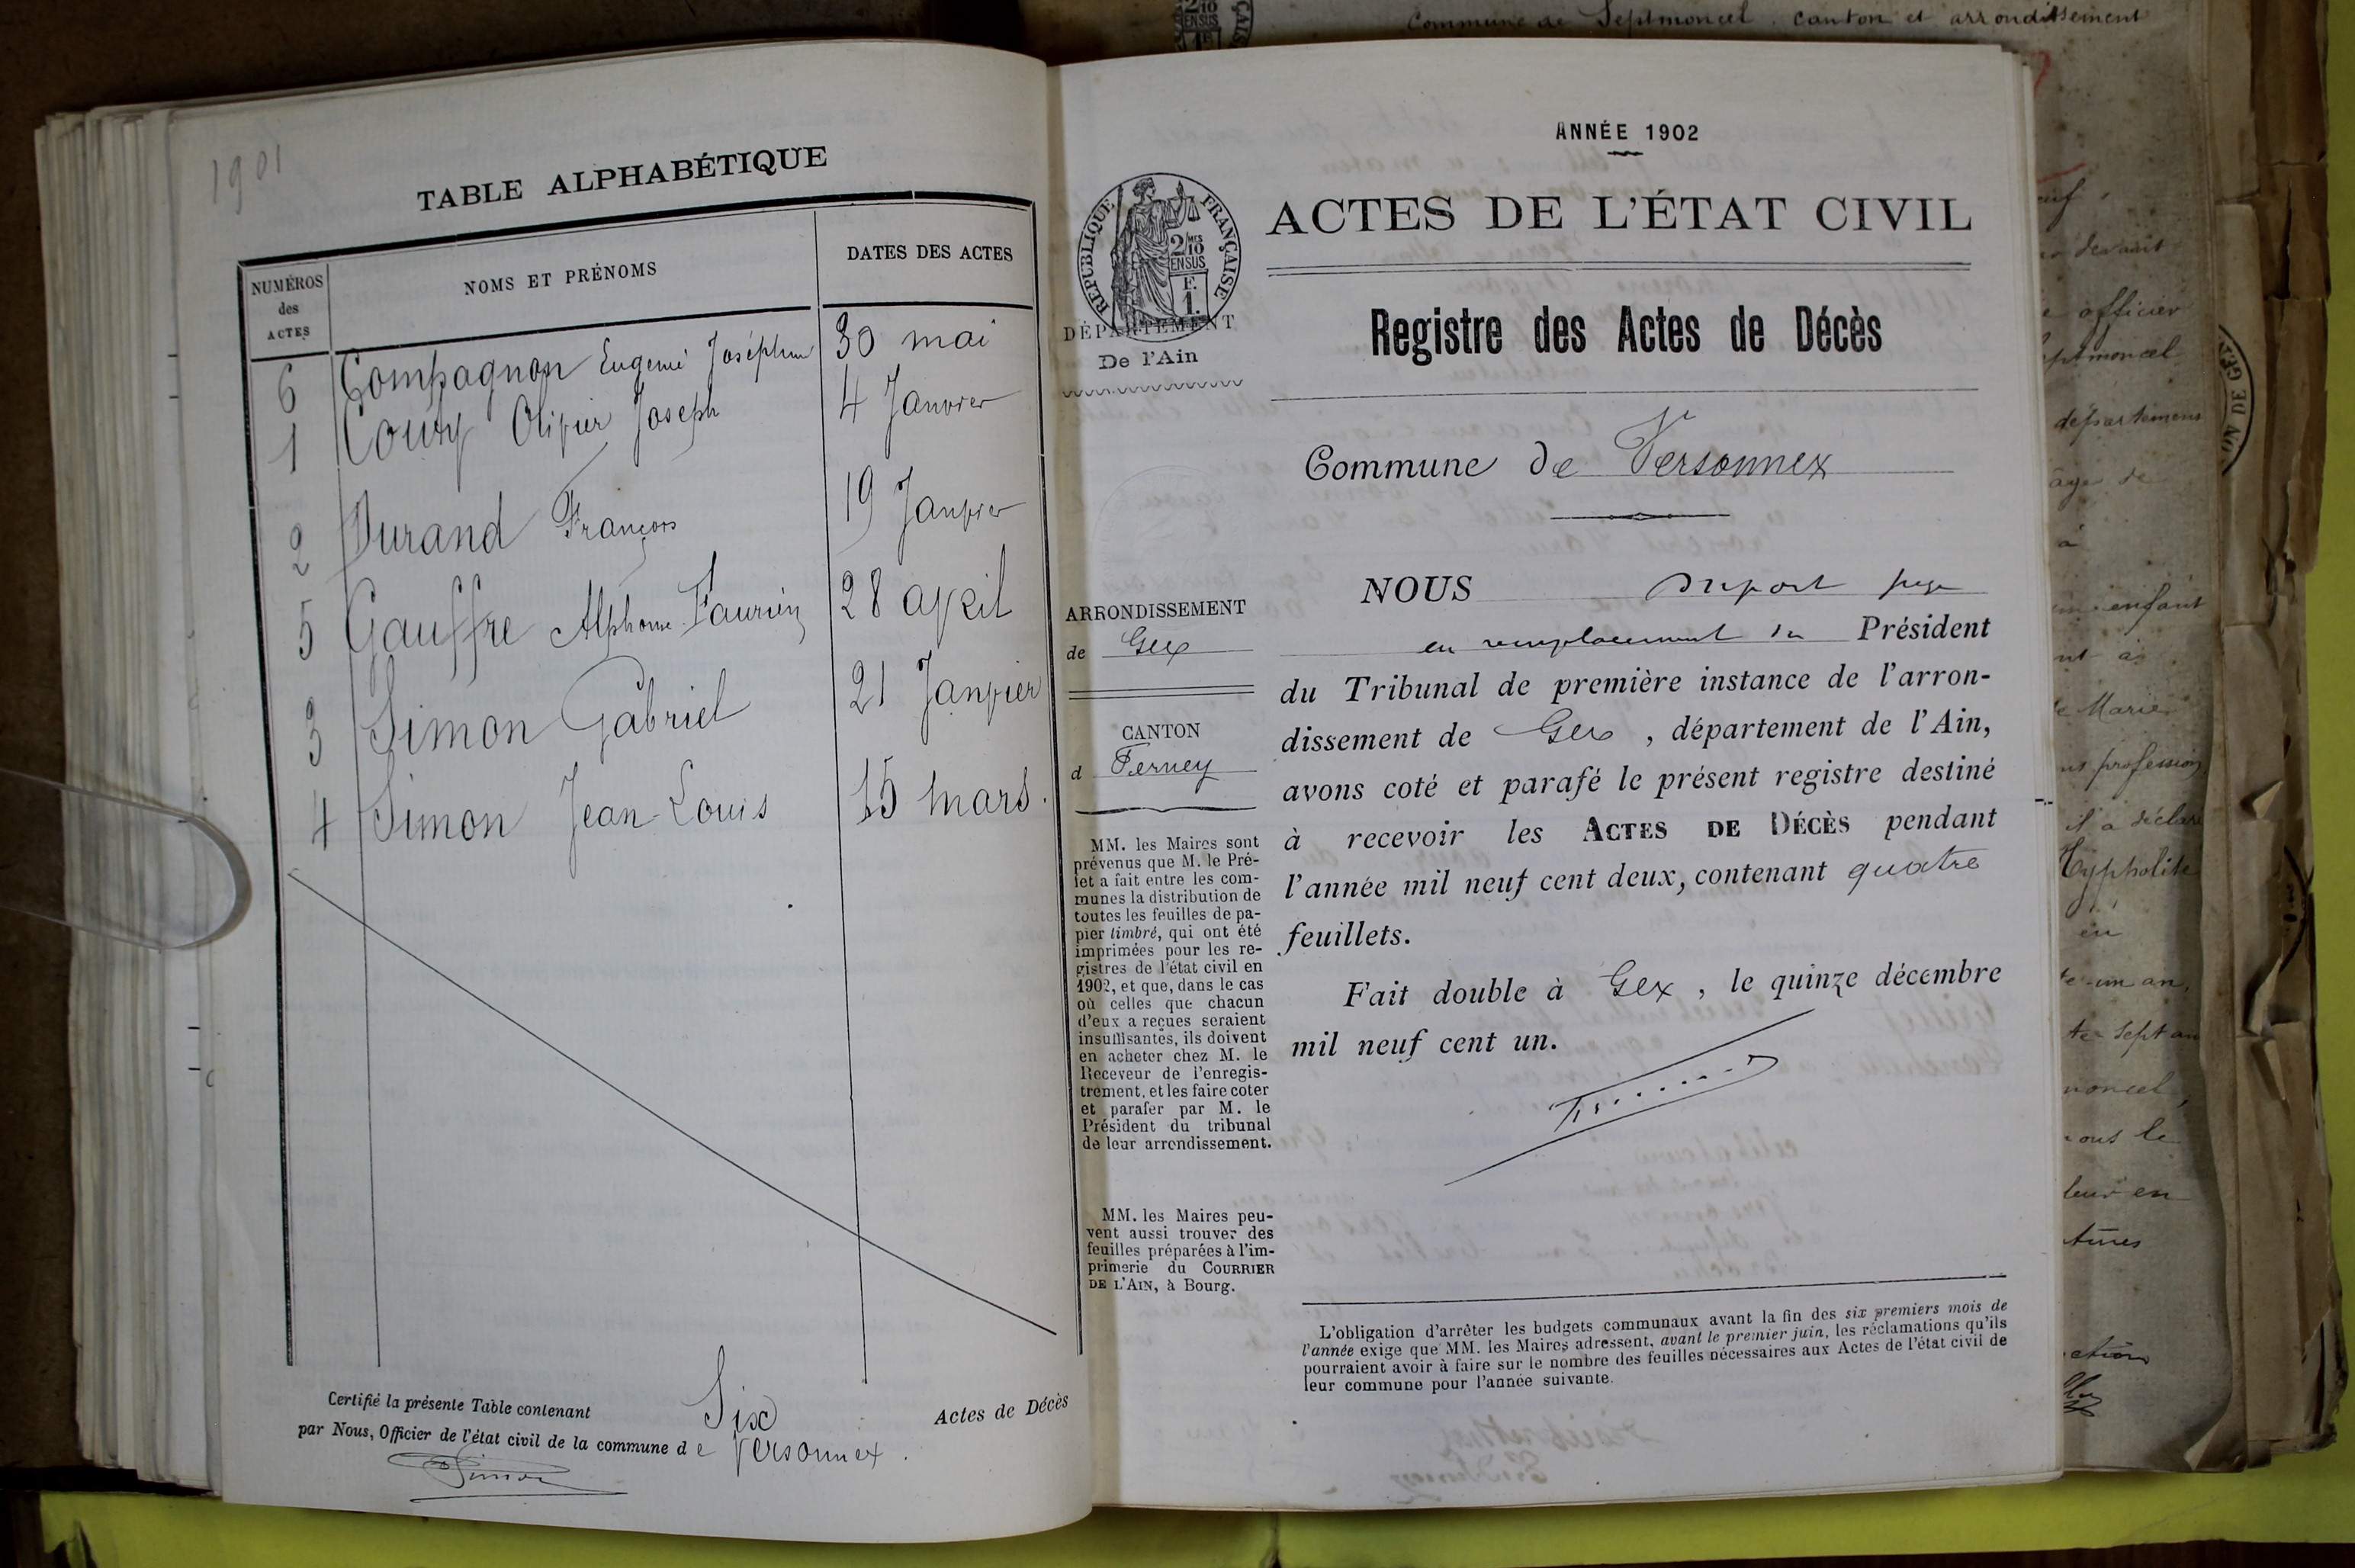 1901
TABLE ALPHABÉTIQUE
NUMÉROS des ACTES NOMS ET PRÉNOMS DATES DES ACTES
6 Compagnon Eugenie Joséphine 30 mai
1 Coury Olivier Joseph 4 Janvier
2 Durand François 19 Janvier
5 Gauffre Alphonse 28 avril
3 Simon Gabriel 21 Janvier
4 Simon Jean-Louis 15 mars.
Certifié la présente Table contenant Six Actes de Décès
par Nous, Officier de l'état civil de la commune de Versonnex.
Simon
Commune de Septmoncel, canton et arrondissement
ANNÉE 1902
RÉPUBLIQUE FRANÇAISE
2/10MES
EN SUS
F.
1.
DÉPARTEMENT
De l'Ain
ARRONDISSEMENT
de Gex
CANTON
d Ferney
MM. les Maires sont
prévenus que M. le Pré-
fet a fait entre les com-
munes la distribution de
toutes les feuilles de pa-
pier timbré, qui ont été
imprimées pour les re-
gistres de l'état civil en
1902, et que, dans le cas
où celles que chacun
d'eux a reçues seraient
insuffisantes, ils doivent
en acheter chez M. le
Receveur de l'enregis-
trement, et les faire coter
et parafer par M. le
Président du tribunal
de leur arrondissement.
MM. les Maires peu-
vent aussi trouver des
feuilles préparées à l'im-
primerie du COURRIER
DE L'AIN, à Bourg.
ACTES DE L'ÉTAT CIVIL
Registre des Actes de Décès
Commune de Versonnex
NOUS Duport juge
en remplacement du Président
du Tribunal de première instance de l'arron-
dissement de Gex, département de l'Ain,
avons coté et parafé le présent registre destiné
à recevoir les ACTES DE DÉCÈS pendant
l'année mil neuf cent deux, contenant quatre
feuillets.
Fait double à Gex, le quinze décembre
mil neuf cent un.
L'obligation d'arrêter les budgets communaux avant la fin des six premiers mois de
l'année exige que MM. les Maires adressent, avant le premier juin, les réclamations qu'ils
pourraient avoir à faire sur le nombre des feuilles nécessaires aux Actes de l'état civil de
leur commune pour l'année suivante.
devant
officier
département
âge de
à
enfant
Marie
profession
il a déclaré
Hypholite
un an,
sept an
leur en